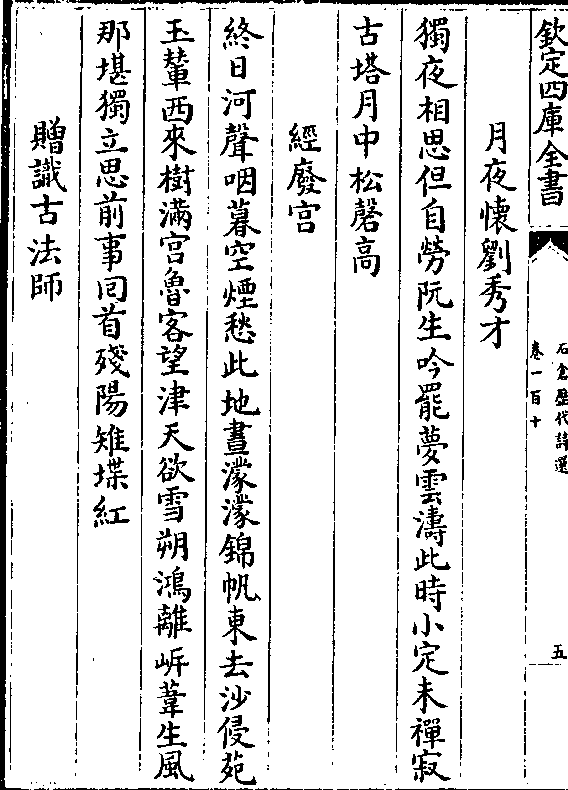 欽定四庫全書
石倉歷代詩選
卷一百十
五
月夜懷劉秀才
獨夜相思但自勞阮生吟罷夢雲濤此時小定未禪寂
古塔月中松磬高
經廢宫
終日河聲咽暮空煙愁此地晝濛濛錦帆東去沙侵苑
玉輦西來樹滿宫魯客望津天欲雪朔鴻離㟁葦生風
那堪獨立思前事囘首殘陽雉堞紅
贈識古法師